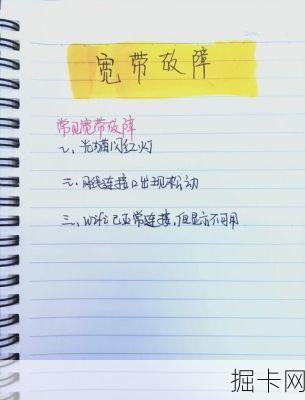 宽带故障
常见宽带故障
一、光猫闪红灯
二、网线连接口出现松动
三、wifi已正常连接,但显示不可用
掘卡网